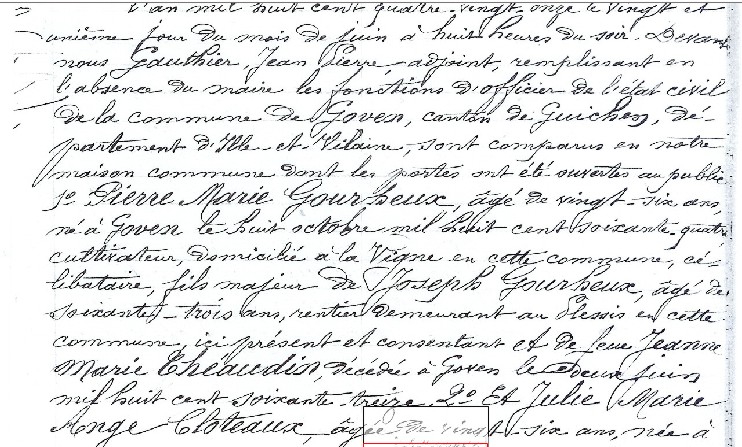 L'an mil huit cent quatre-vingt-onze le vingt et
unième jour du mois de juin à huit heures du soir. Devant
nous Gauthier, Jean Pierre, adjoint, remplissant en
l'absence du maire les fonctions d'officier de l'état civil
de la commune de Goven, canton de Guichen, dé-
partement d'Ille et Vilaine, sont comparus en notre
maison commune dont les portes ont été ouvertes au public.
1º Pierre Marie Gourheux, âgé de vingt-six ans,
né à Goven le huit octobre mil huit cent soixante-quatre
cultivateur, domicilié à la Vigne en cette commune, cé-
libataire, fils majeur de Joseph Gourheux, âgé de
soixante-trois ans, rentier demeurant au Plessis en cette
commune, ici présent et consentant et de feue Jeanne
Marie Théaudin, décédée à Goven le deux juin
mil huit cent soixante-treize. 2º Et Julie Marie
Ange Cloteaux, âgée de vingt-six ans, née à